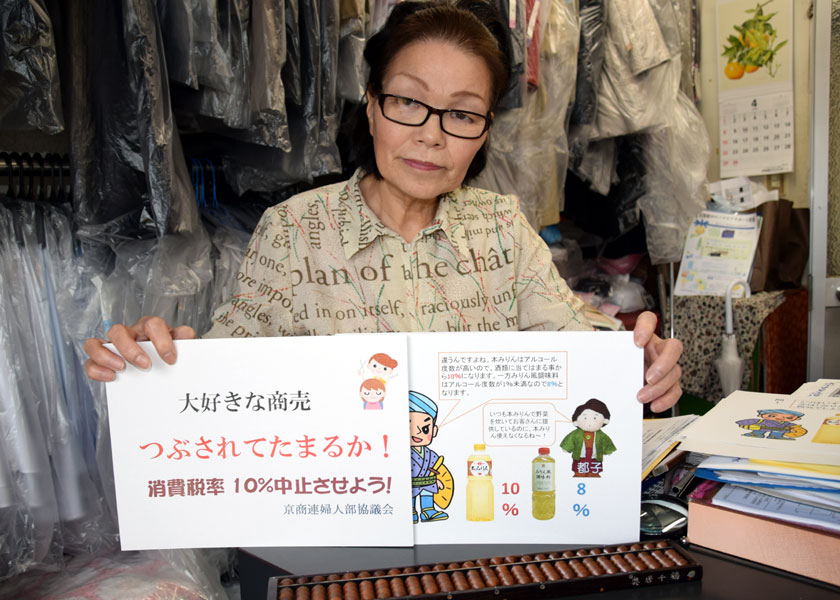 angles
which
angley
in one,
plan of
the chât
e more impo
ed in
on itself,
raciously unf
4
大好きな商売
つぶされてたまるか！
消費税率 10%中止させよう!
京商連婦人部協議会
違うんですよね。本みりんはアルコール
度数が高いので、酒類に当てはまる事か
ら10%になります。一方みりん風調味料
はアルコール度数が1%未満なので8%と
なります。
いつも本みりんで野菜
を炊いてお客さんに提
供しているのに、本みり
ん使えなくなるねー！
本みりん
みりん風
調味料
10
%
8
%
都子